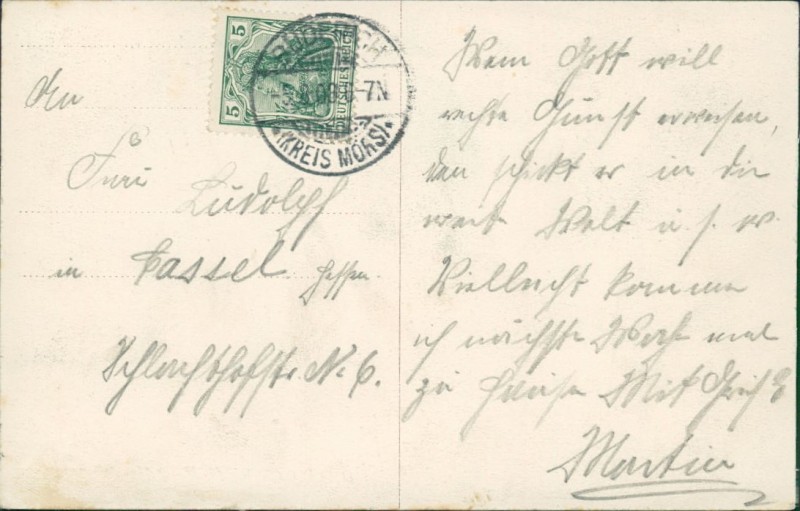 5
5
DEUTSCHES REICH
(KREIS MÖRS)
An
Frau
Ludolph
in Cassel Hessen
Schlachthofstr No 6.
Wem Gott will
rechte Gunst erweisen,
den schickt er in die
weite Welt u. s. w.
Vielleicht komme
ich nächste Woche mal
zu Hause Mit Gruß
Martin